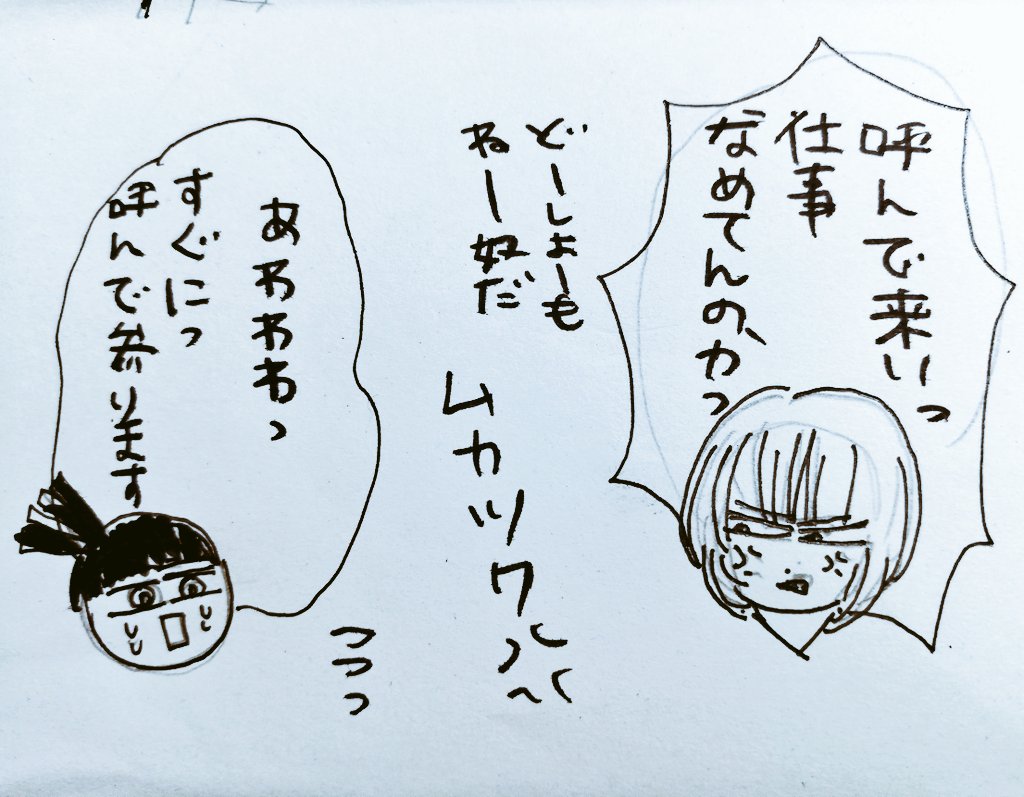 呼んで来いっ
仕事
なめてんのかっ
どーしよーも
ねー奴だ
ムカツクッ
つつっ
あわわわっ
すぐにっ
呼んで参ります